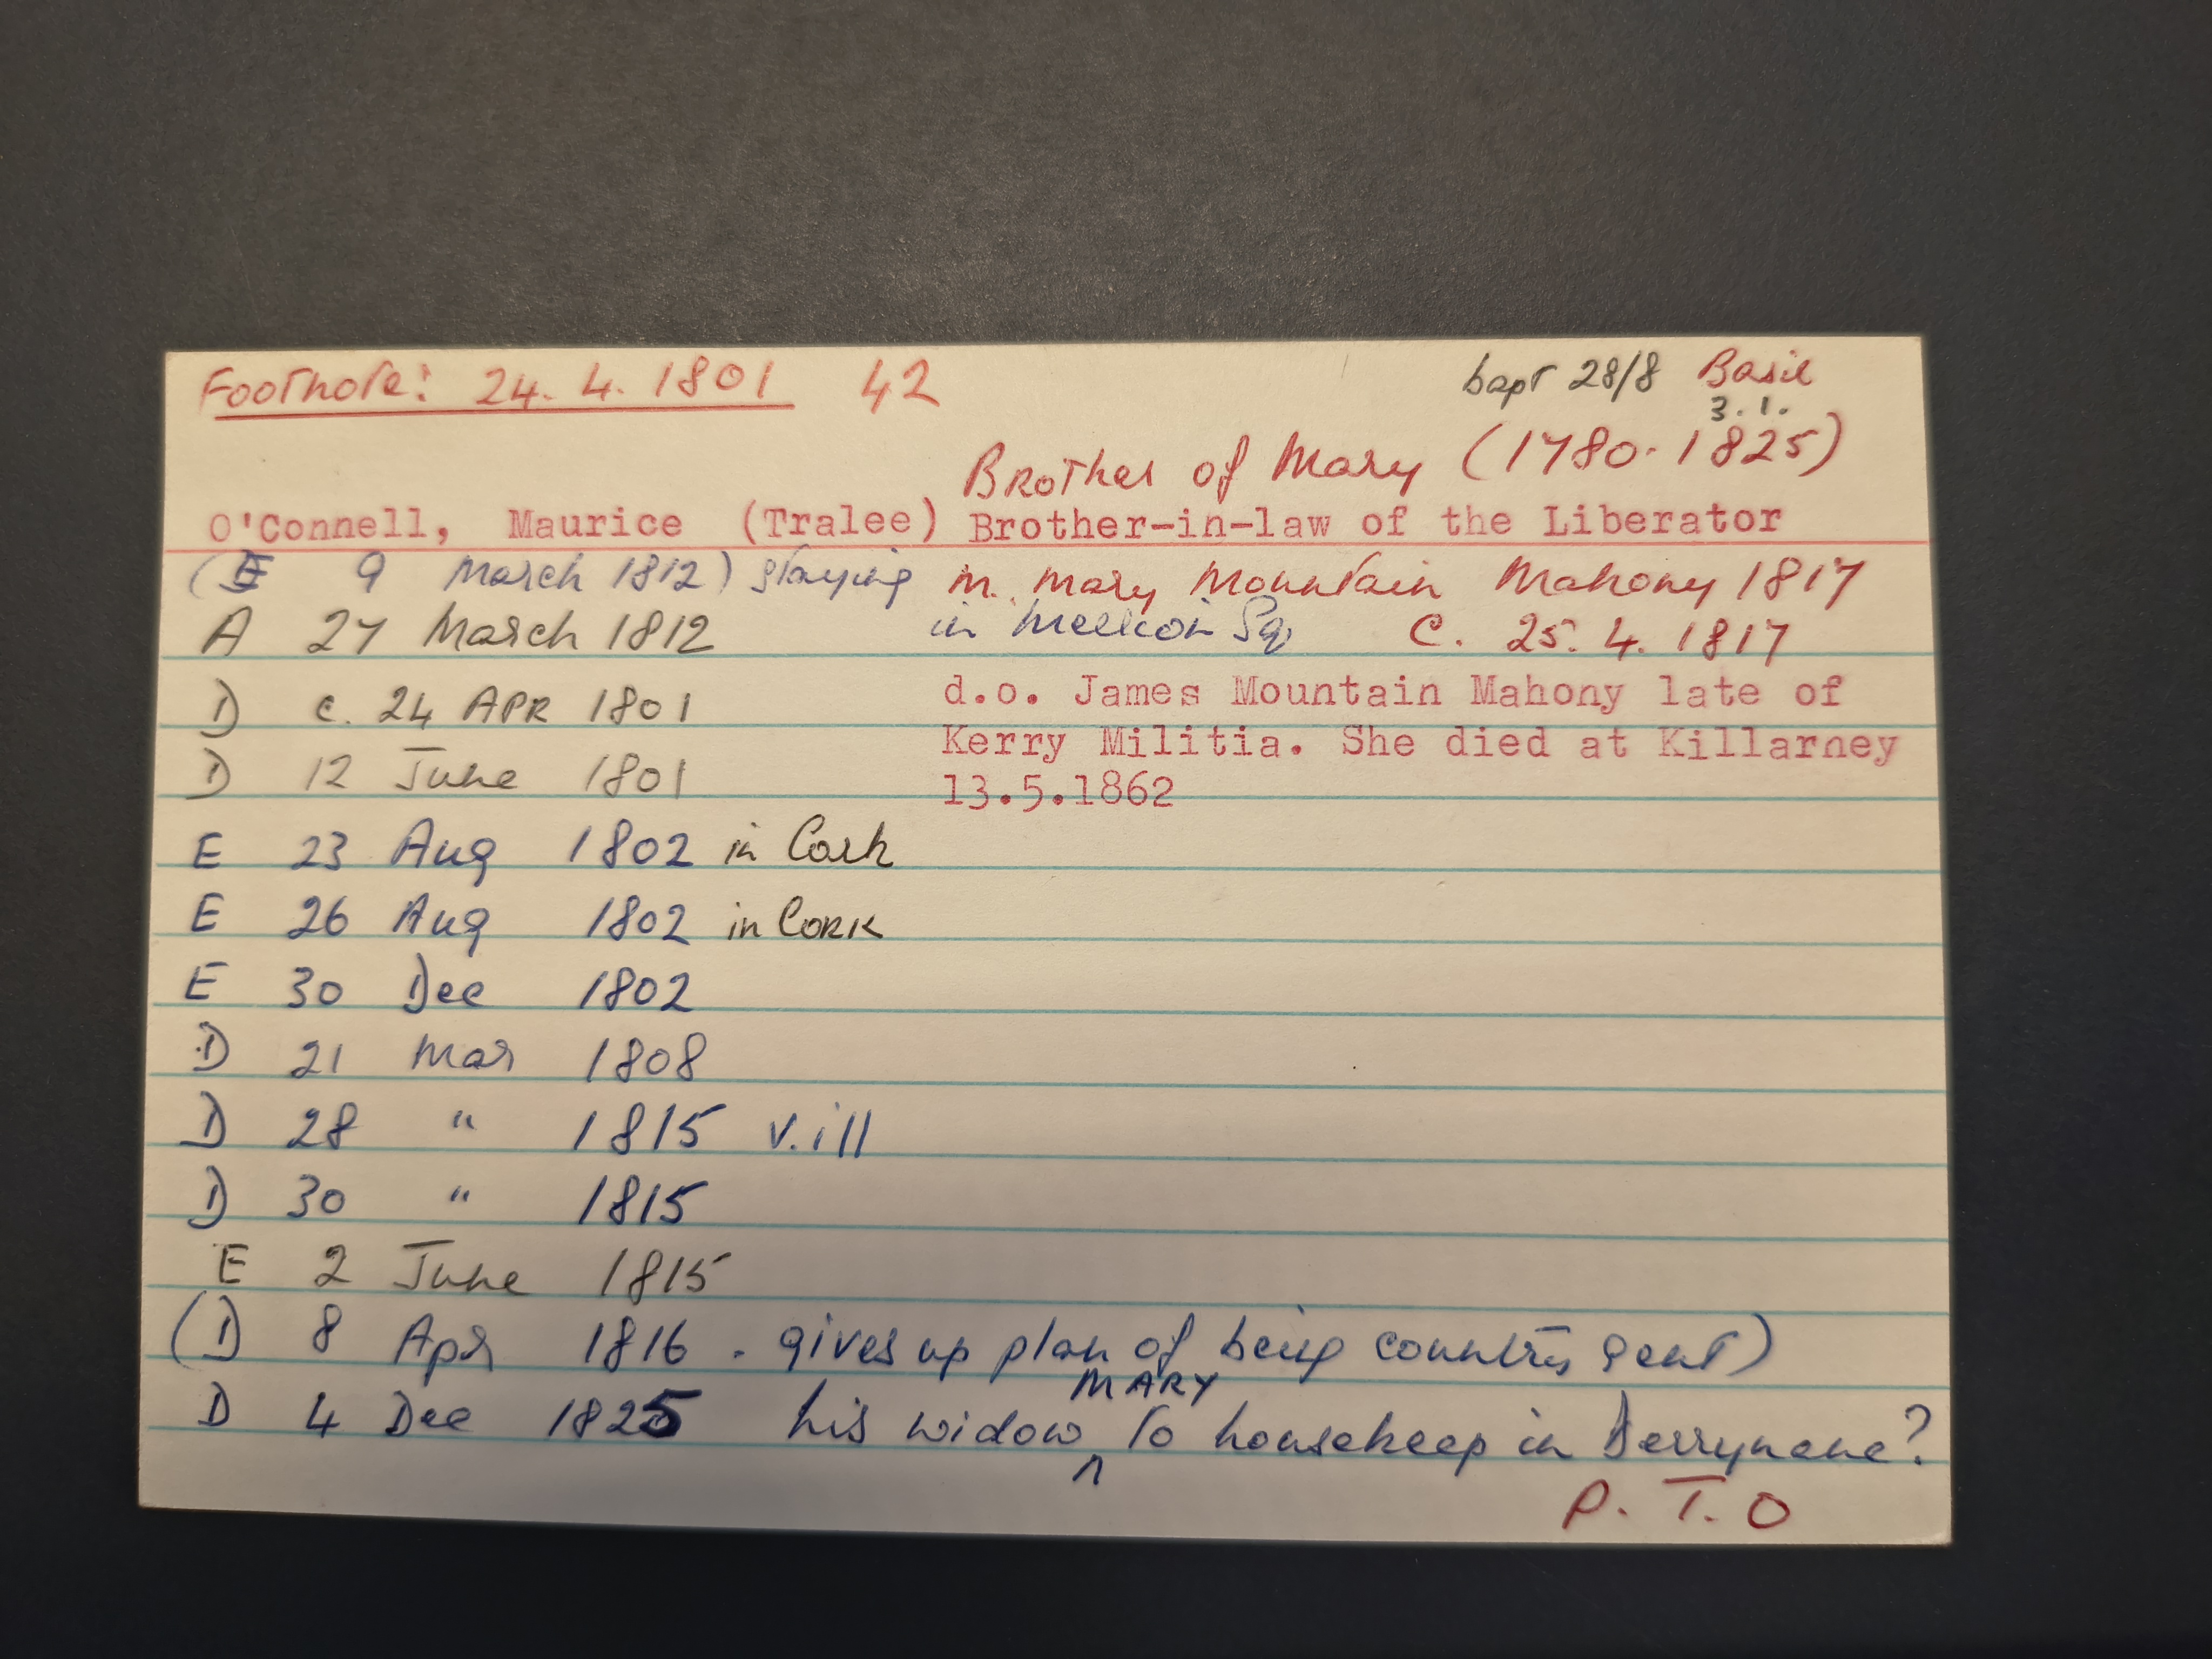 Footnote: 24. 4. 1801 42 bapt 28/8 Basil
3. 1.
Brother of Mary (1780-1825)
O'Connell, Maurice (Tralee) Brother-in-law of the Liberator
(E 9 March 1812) staying m. Mary Mountain Mahony 1817
A 27 March 1812 in Merrion Sq C. 25. 4. 1817
D c. 24 APR 1801 d.o. James Mountain Mahony late of
Kerry Militia. She died at Killarney
D 12 June 1801 13.5.1862
E 23 Aug 1802 in Cork
E 26 Aug 1802 in CORK
E 30 Dec 1802
D 21 Mar 1808
D 28 " 1815 v. ill
D 30 " 1815
E 2 June 1815
(D 8 Apr 1816 - gives up plan of being country gent)
MARY
D 4 Dec 1825 his widow ^ to housekeep in Derrynane?
P. T. O